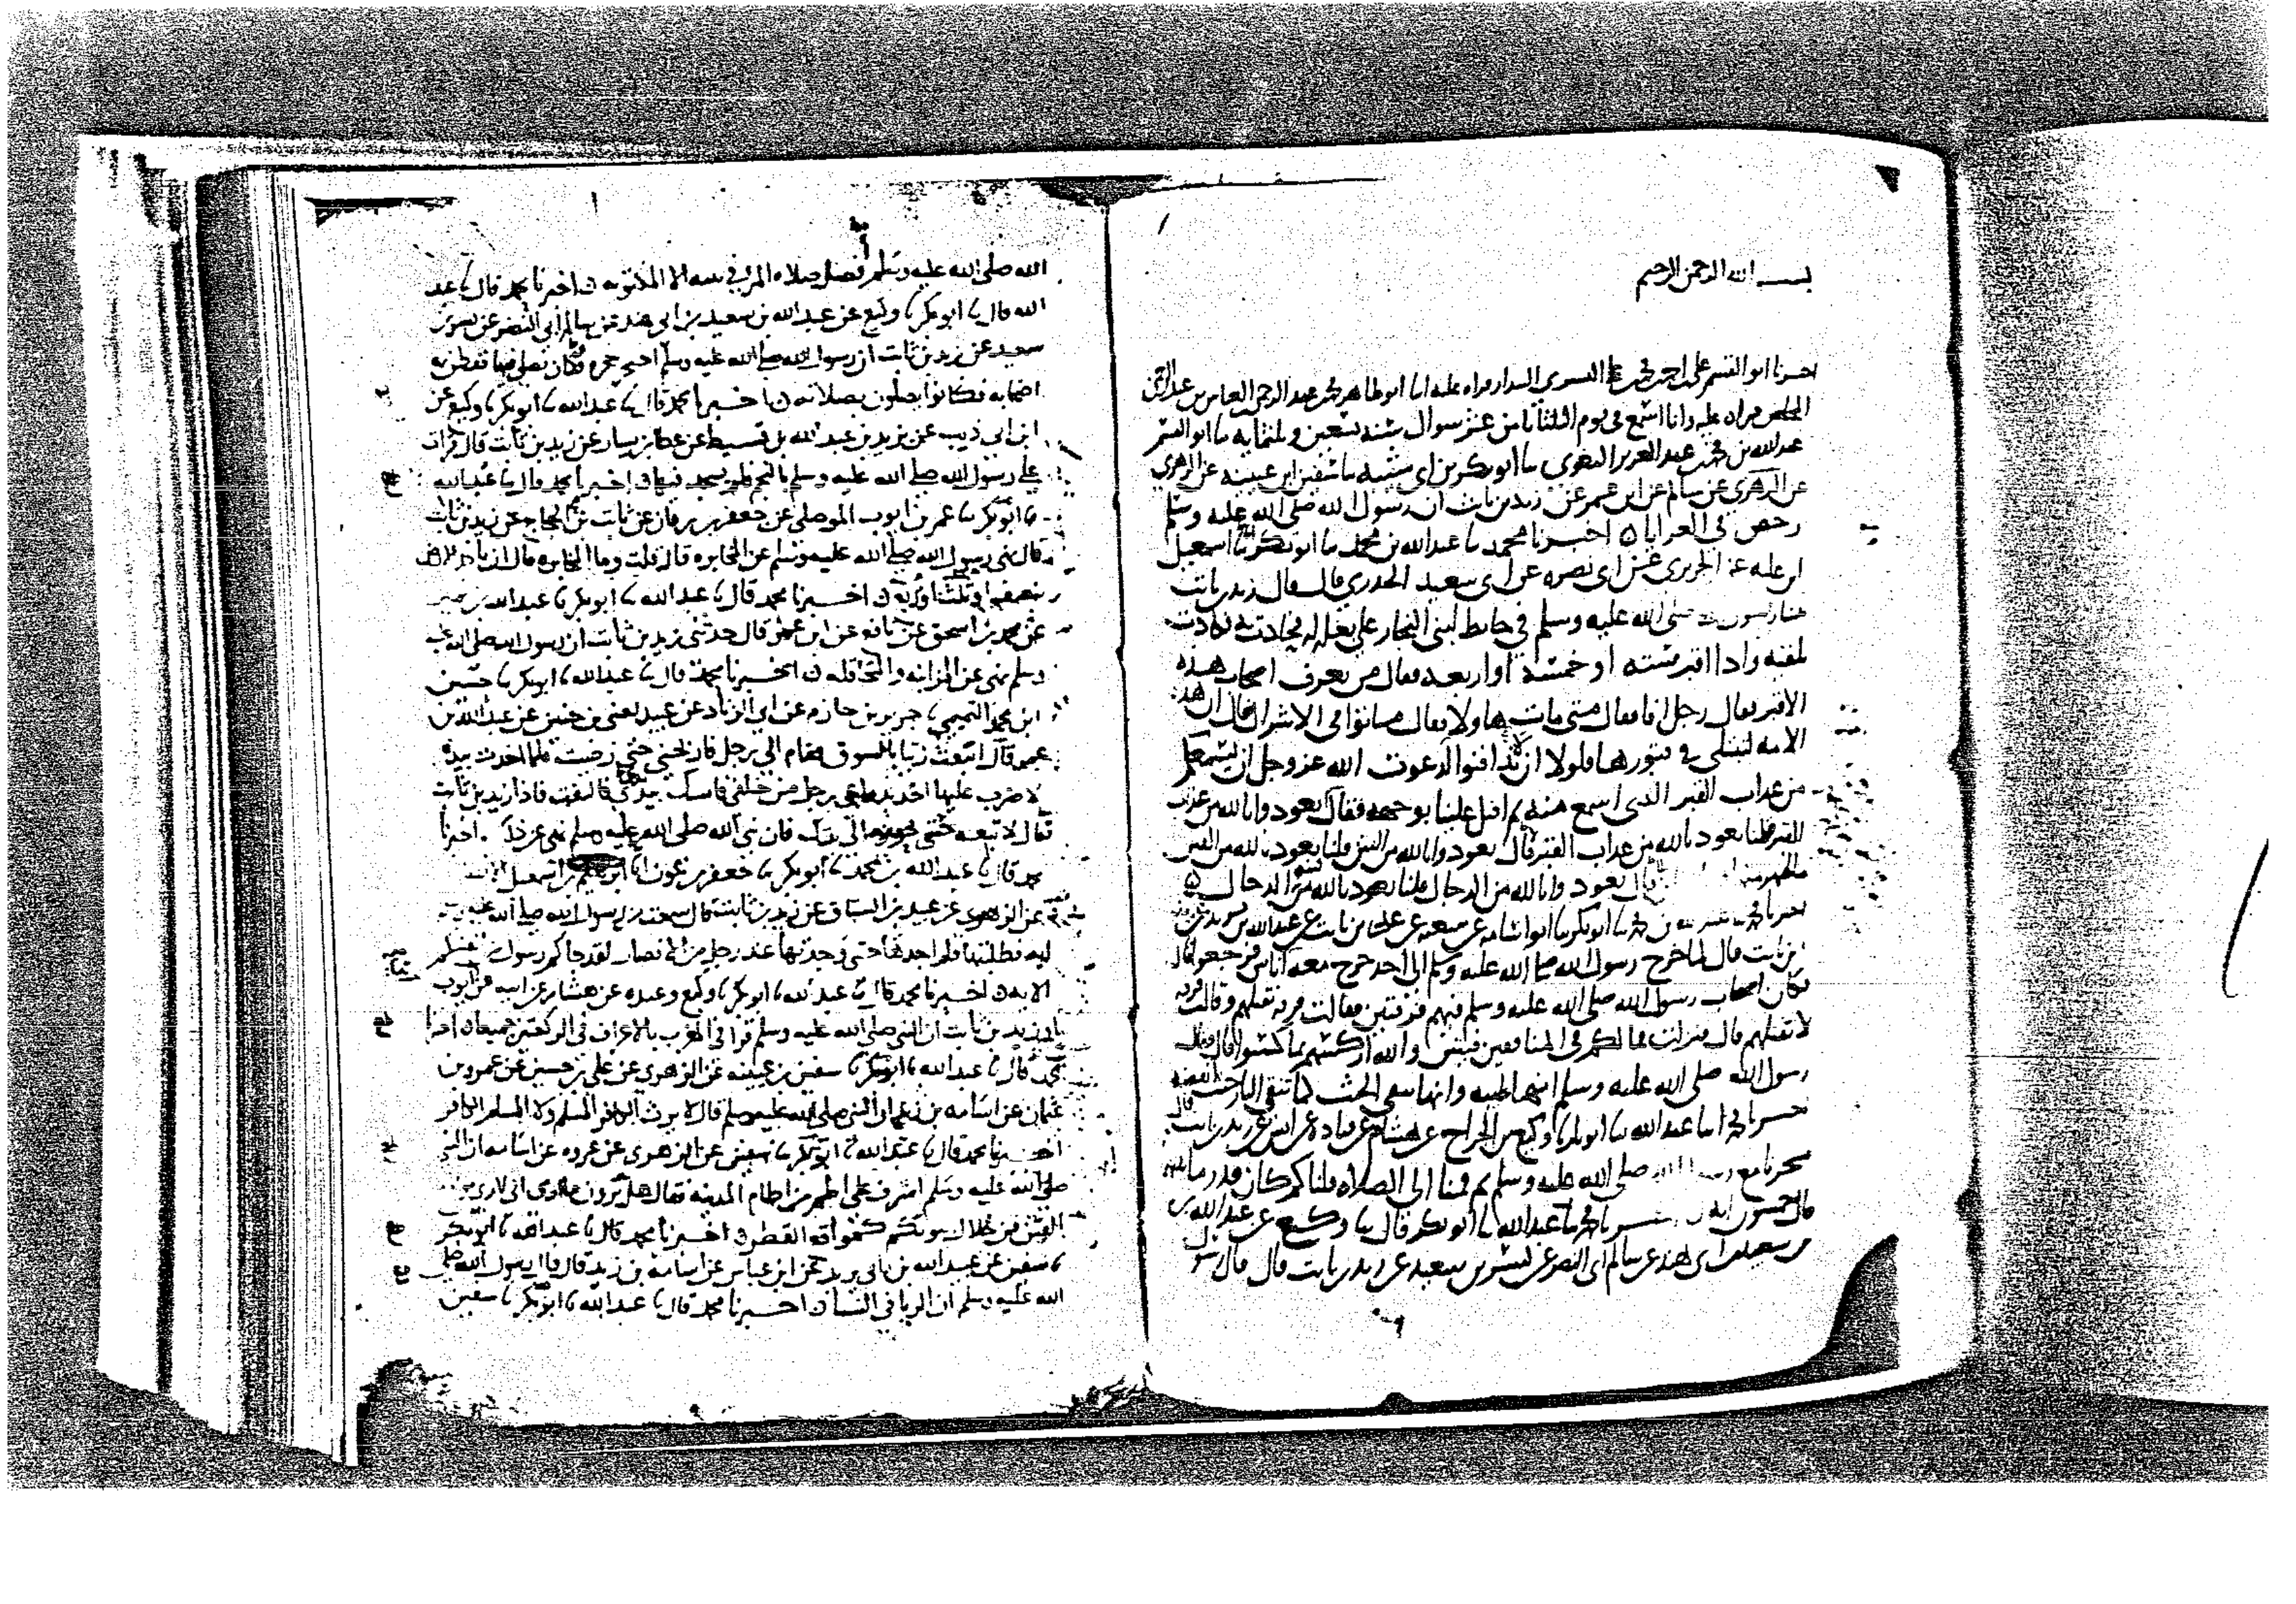 بسم الله الرحمن الرحيم
اخبرنا ابو القسم على بن احمد بن محمد بن البسري البندار قراه عليه انا ابو طاهر محمد بن عبد الرحمن بن العباس بن عبد الرحمن
المخلص قراه عليه وانا اسمع في يوم الثلثا ثامن عشر شوال سنه تسعين وثلثمايه نا ابو القسم
عبد الله بن محمد بن عبد العزيز البغوى نا ابو بكر بن ابى شيبه نا سفين ابن عيينه عن الزهري
عن الزهري عن سالم عن ابن عمر عن زيد بن ثابت ان رسول الله صلى الله عليه وسلم
رخص في العرايا ه اخبرنا محمد نا عبد الله بن محمد نا ابو بكر نا اسمعيل
ابن عليه عن الجريري عن ابى نضره عن ابى سعيد الخدري قال قال زيد بن ثابت
صلى الله عليه وسلم في حايط لبنى النجار على بغله له فحادت به فكادت
تلقيه واذا اقبر سته او خمسه او اربعه فقال من يعرف اصحاب هذه
الاقبر فقال رجل انا فقال متى مات هاولا فقال ماتوا في الاشراك قال ان هذه
الامه لتبتلى في قبورها فلولا ان لا تدافنوا لدعوت الله عز وجل ان يسمعكم
من عذاب القبر الذي اسمع منه ثم اقبل علينا بوجهه فقال تعوذوا بالله من عذاب
القبر قلنا نعوذ بالله من عذاب القبر قال تعوذوا بالله من الفتن قلنا نعوذ بالله من الفتن
ما ظهر منها قال تعوذوا بالله من الدجال قلنا نعوذ بالله من فتنه الدجال ه
اخبرنا محمد نا عبد الله بن محمد نا ابو بكر نا ابو اسامه عن شعبه عن عدى بن ثابت عن عبد الله بن يزيد عن زيد
بن ثابت قال لما خرج رسول الله صلى الله عليه وسلم الى احد خرج معه اناس فرجعوا قال
فكان اصحاب رسول الله صلى الله عليه وسلم فيهم فرقتين فقالت فرقه نقتلهم وقالت فرقه
لا نقتلهم قال فنزلت فما لكم في المنافقين فئتين والله اركسهم بما كسبوا قال فقال
رسول الله صلى الله عليه وسلم انها طيبه وانها تنفى الخبث كما تنفى النار خبث الفضه
اخبرنا محمد نا عبد الله نا ابو بكر نا وكيع بن الجراح عن هشام عن قتاده عن انس عن زيد بن ثابت قال
تسحرنا مع رسول الله صلى الله عليه وسلم ثم قمنا الى الصلاه قلنا كم كان قدر ما بينهما
قال خمسون ايه اخبرنا محمد نا عبد الله نا ابو بكر قال نا وكيع عن عبد الله
بن سعيد بن ابى هند عن سالم ابى النضر عن بسر بن سعيد عن زيد بن ثابت قال قال رسول
الله صلى الله عليه وسلم افضل صلاه المرء في بيته الا المكتوبه ن اخبرنا محمد قال نا عبد
الله قال نا ابو بكر نا وكيع عن عبد الله بن سعيد بن ابى هند عن سالم ابى النضر عن بسر بن
سعيد عن زيد بن ثابت ان رسول الله صلى الله عليه وسلم احتجر حجره فكان يصلى فيها ففطن به
اصحابه فكانوا يصلون بصلاته ن اخبرنا محمد قال نا عبد الله نا ابو بكر نا وكيع عن
ابن ابى ذيب عن يزيد بن عبد الله بن قسيط عن عطا بن يسار عن زيد بن ثابت قال قرات
على رسول الله صلى الله عليه وسلم بالنجم فلم يسجد فيها ن اخبرنا محمد قال نا عبد الله
نا ابو بكر نا عمر بن ايوب الموصلي عن جعفر بن برقان عن ثابت بن الحجاج عن زيد بن ثابت
قال نهى رسول الله صلى الله عليه وسلم عن المخابره قال قلت وما المخابره قال ان تاخذ الارض
بنصف او ثلث او ربع ن اخبرنا محمد قال نا عبد الله نا ابو بكر نا عبد الله بن نمير
عن محمد بن اسحق عن نافع عن ابن عمر قال حدثنى زيد بن ثابت ان رسول الله صلى الله عليه
وسلم نهى عن المزابنه والمحاقله ن اخبرنا محمد قال نا عبد الله نا ابو بكر نا حسين
ابن محمد التميمي نا جرير بن حازم عن ابى الزناد عن عبيد يعنى بن حنين عن عبد الله بن
عمر قال ابتعت زيتا بالسوق فقام الي رجل فاربحنى حتى رضيت فلما اخذت بيده
لاضرب عليها اخذ بذراعى رجل من خلفى فامسك بيدى فالتفت فاذا زيد بن ثابت
فقال لا تبعه حتى تحوزه الى بيتك فان نبى الله صلى الله عليه وسلم نهى عن ذلك اخبرنا
محمد قال نا عبد الله بن محمد نا ابو بكر نا جعفر بن عون انا ابرهيم بن اسمعيل
عن الزهرى عن عبيد بن السباق عن زيد بن ثابت قال سمعت من رسول الله صلى الله عليه وسلم
ايه فطلبتها فلم اجدها حتى وجدتها عند رجل من الانصار لقد جاكم رسول من انفسكم
الايه ن اخبرنا محمد قال نا عبد الله نا ابو بكر نا وكيع وعبده عن هشام عن ابيه عن ابى ايوب
او زيد بن ثابت ان النبي صلى الله عليه وسلم قرا في المغرب بالاعراف في الركعتين جميعا ن اخبرنا
محمد قال نا عبد الله نا ابو بكر نا سفين بن عيينه عن الزهري عن على بن حسين عن عمرو بن
عثمان عن اسامه بن زيد ان النبي صلى الله عليه وسلم قال لا يرث الكافر المسلم ولا المسلم الكافر
اخبرنا محمد قال نا عبد الله نا ابو بكر نا سفين عن الزهرى عن عروه عن اسامه ان النبي
صلى الله عليه وسلم اشرف على اطم من اطام المدينه فقال هل ترون ما ارى انى لارى مواقع
الفتن من خلال بيوتكم كمواقع القطر ن اخبرنا محمد قال نا عبد الله نا ابو بكر
نا سفين عن عبيد الله بن ابى يزيد عن ابن عباس عن اسامه بن زيد قال قال رسول الله صلى
الله عليه وسلم ان الربا في النسا ن اخبرنا محمد قال نا عبد الله نا ابو بكر نا سفين